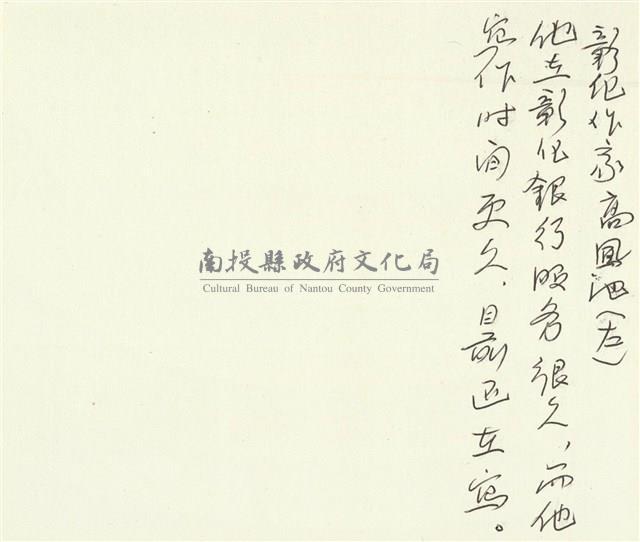 彰化作家高鳳池(左)
他在彰化銀行服务很久,而他
寫作时间更久,目前还在寫。
南投縣政府文化局
Cultural Bureau of Nantou County Government